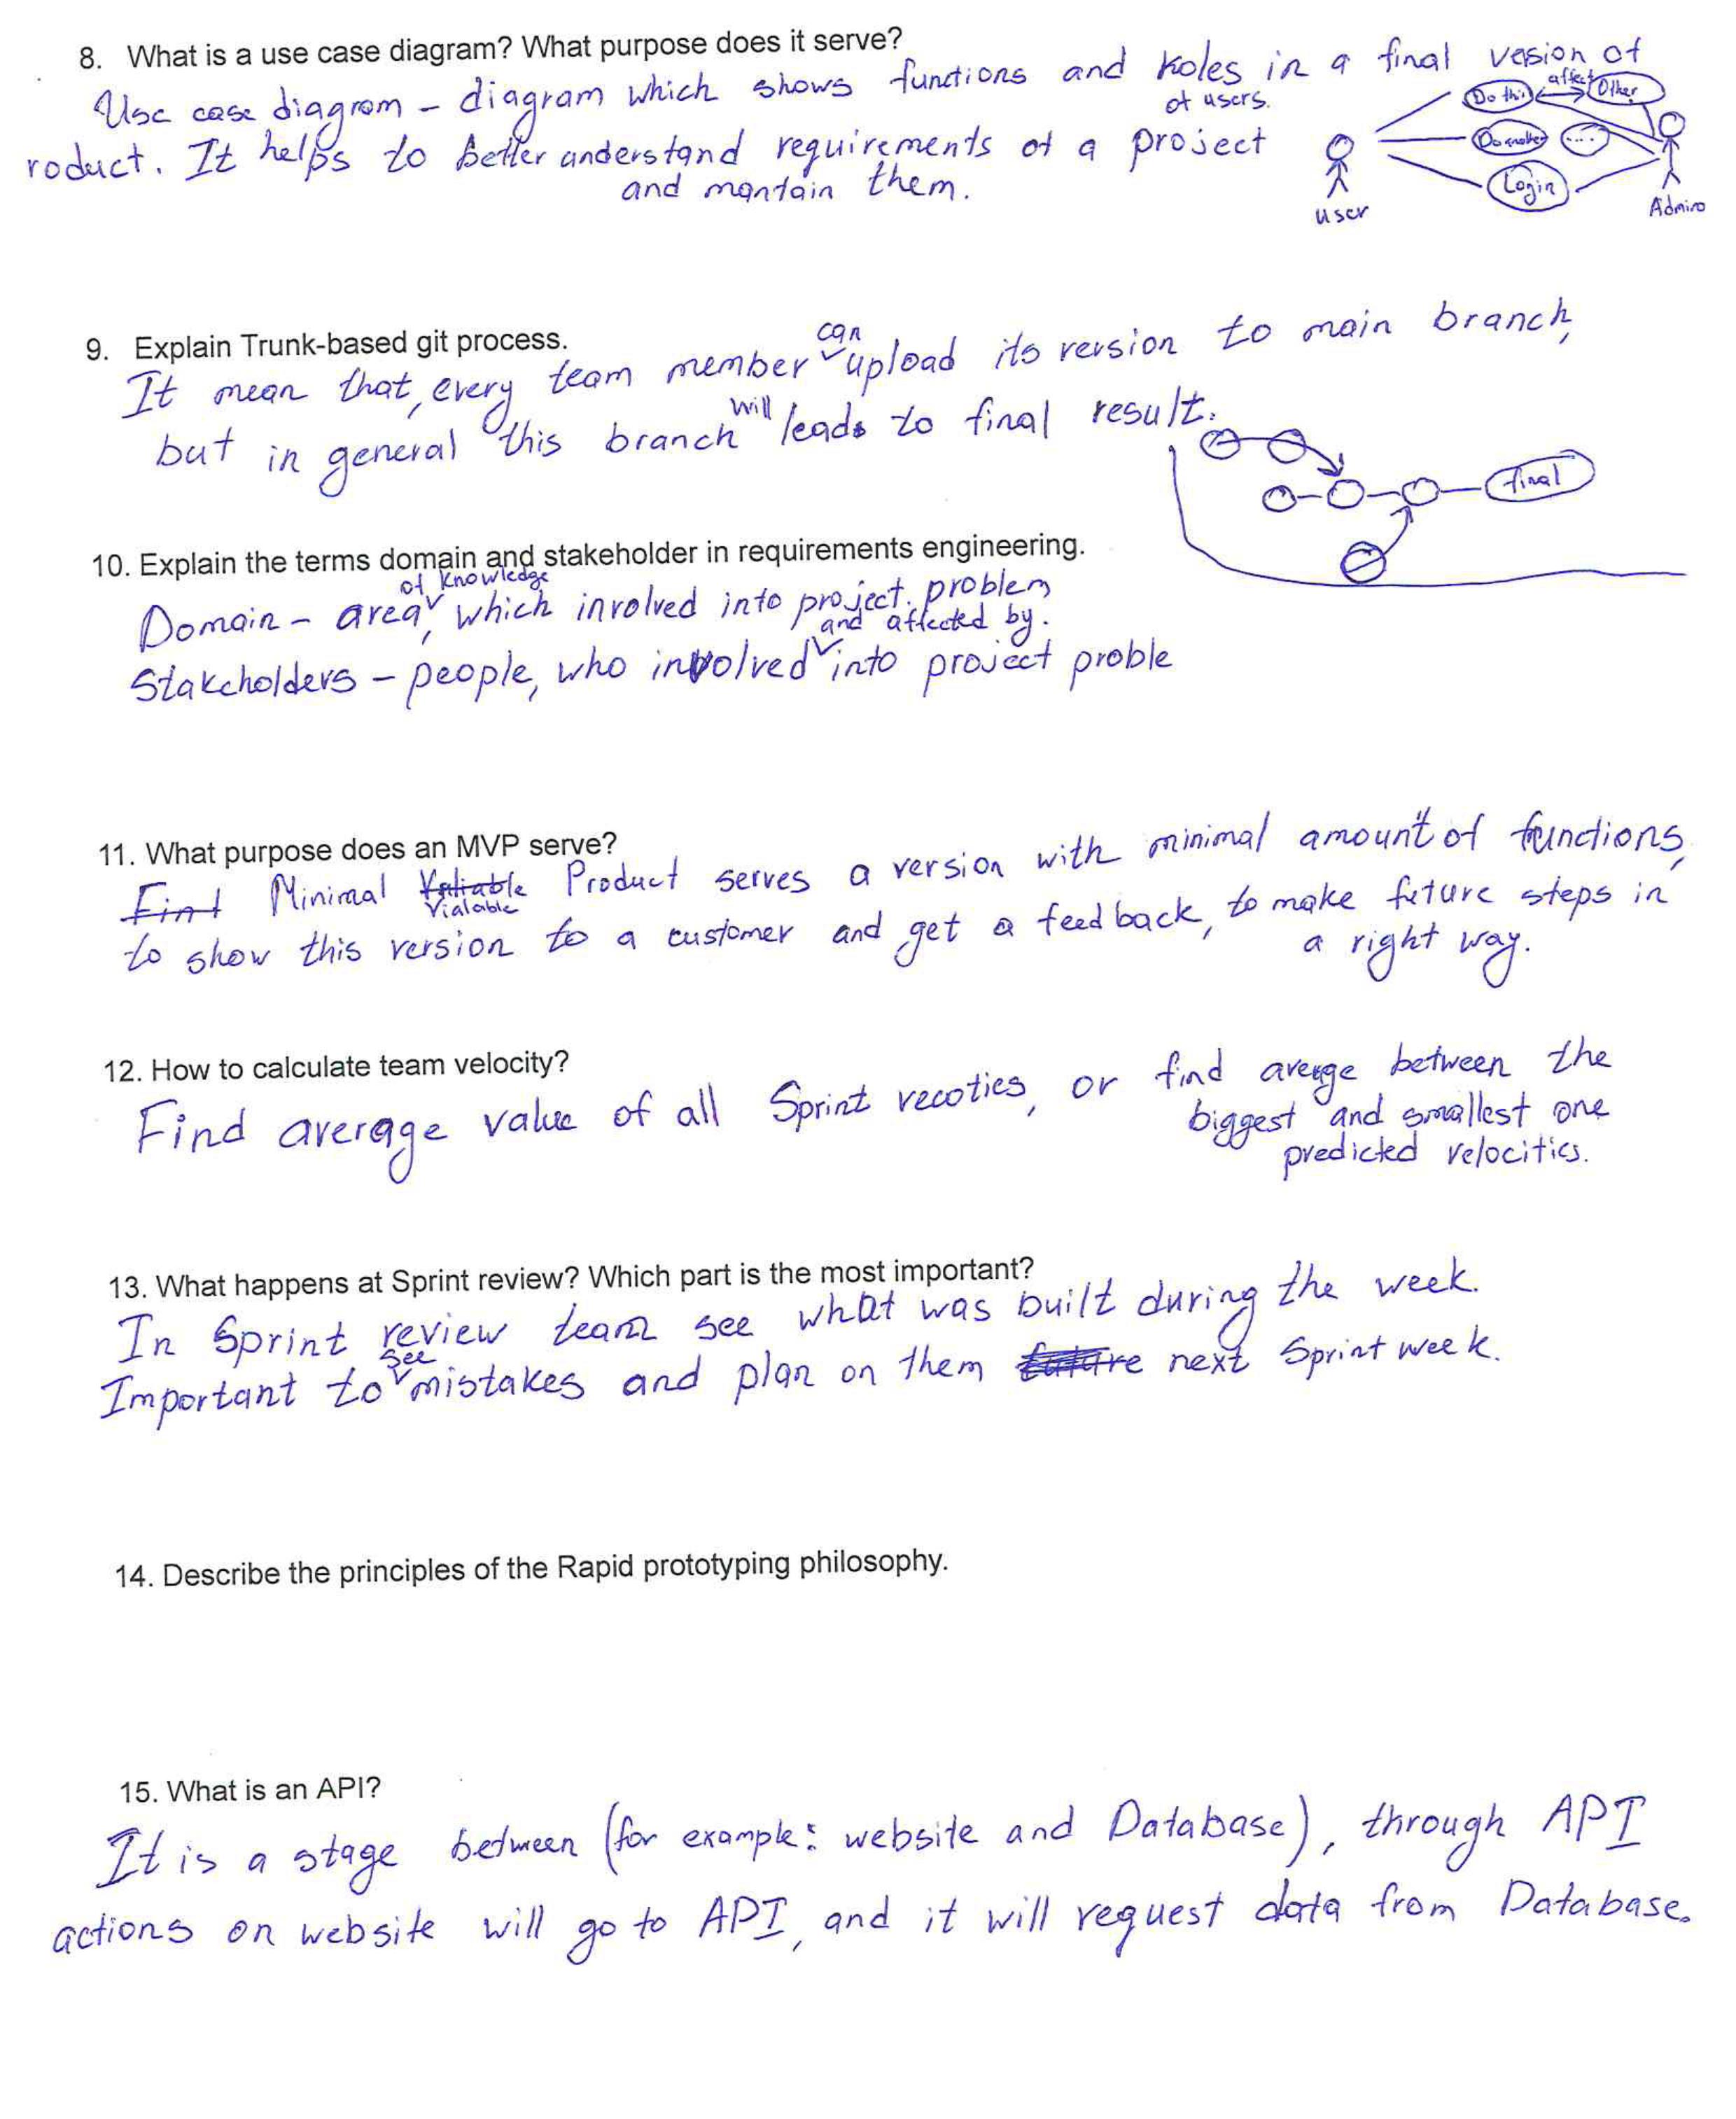 8. What is a use case diagram? What purpose does it serve?
Use case diagram – diagram which shows functions and Roles in a final vesion of
of users.
roduct. It helps to better anderstand requirements of a project
and mantain them.
Do this affect Other
Do another ....
Login
User
Admin
9. Explain Trunk-based git process.
It mean that, every team member can upload its version to main branch,
but in general this branch will leads to final result.
final
10. Explain the terms domain and stakeholder in requirements engineering.
Domain – area of knowledge, which involved into project problem
Stakeholders – people, who involved and affected by. into project proble
11. What purpose does an MVP serve?
Minimal Vialable Product serves a version with minimal amount of functions,
to show this version to a customer and get a feedback, to make future steps in
a right way.
12. How to calculate team velocity?
Find average value of all Sprint vecoties, or find averge between the
biggest and smallest one
predicted velocities.
13. What happens at Sprint review? Which part is the most important?
In Sprint review team see what was built during the week.
Important to see mistakes and plan on them next Sprint week.
14. Describe the principles of the Rapid prototyping philosophy.
15. What is an API?
It is a stage between (for example: website and Database), through API
actions on website will go to API, and it will request data from Database.